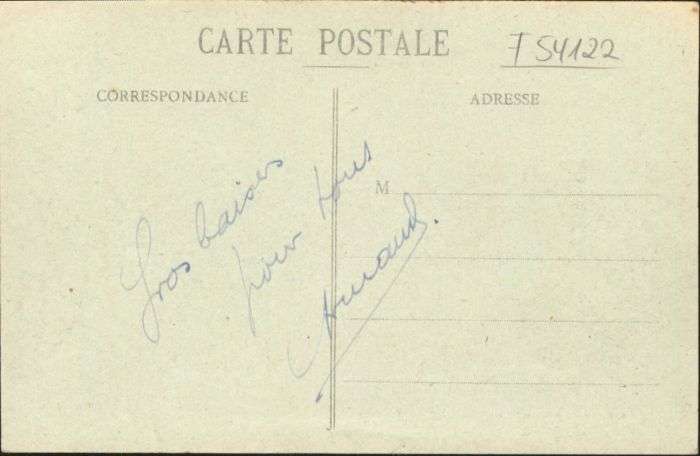 CARTE POSTALE
F 54122
CORRESPONDANCE
ADRESSE
M
Gros baisers
pour tous